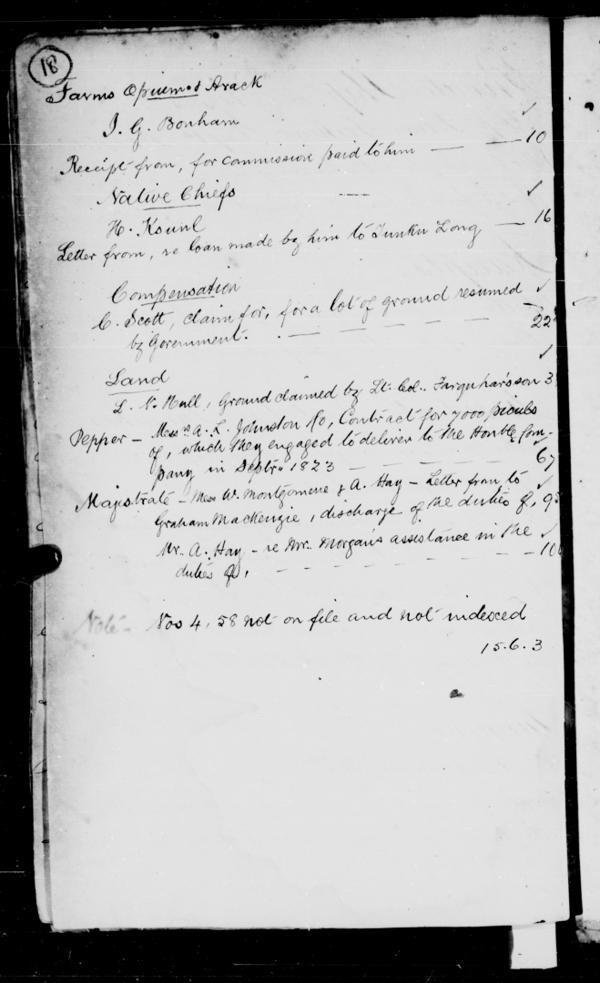 18
Farms Opium & Arack
S. G. Bonham ✓
Receipt from, for commission paid to him — — 10
Native Chiefs — ✓
H. Ksunl
Letter from, re loan made by him to Tunku Long — 16
Compensation
C. Scott, claim for, for a lot of ground resumed ✓
by Government. — — — — 22
Land ✓
L. N. Hull, Ground claimed by Lt. Col. Farquharson 3
Pepper — Messrs A. L. Johnston & Co, Contract for 7000 piculs
of, which they engaged to deliver to the Honble Com-
pany in Septr. 1823 — — — — 67
Magistrate — Mess W. Montgomerie & A. Hay — Letter from to ✓
Graham Mackenzie, discharge of the duties of, 9
Mr. A. Hay — re Mr. Morgan's assistance in the ✓
duties of, — — — — 10
Note — Nos 4, 58 not on file and not indexed
15.6.3